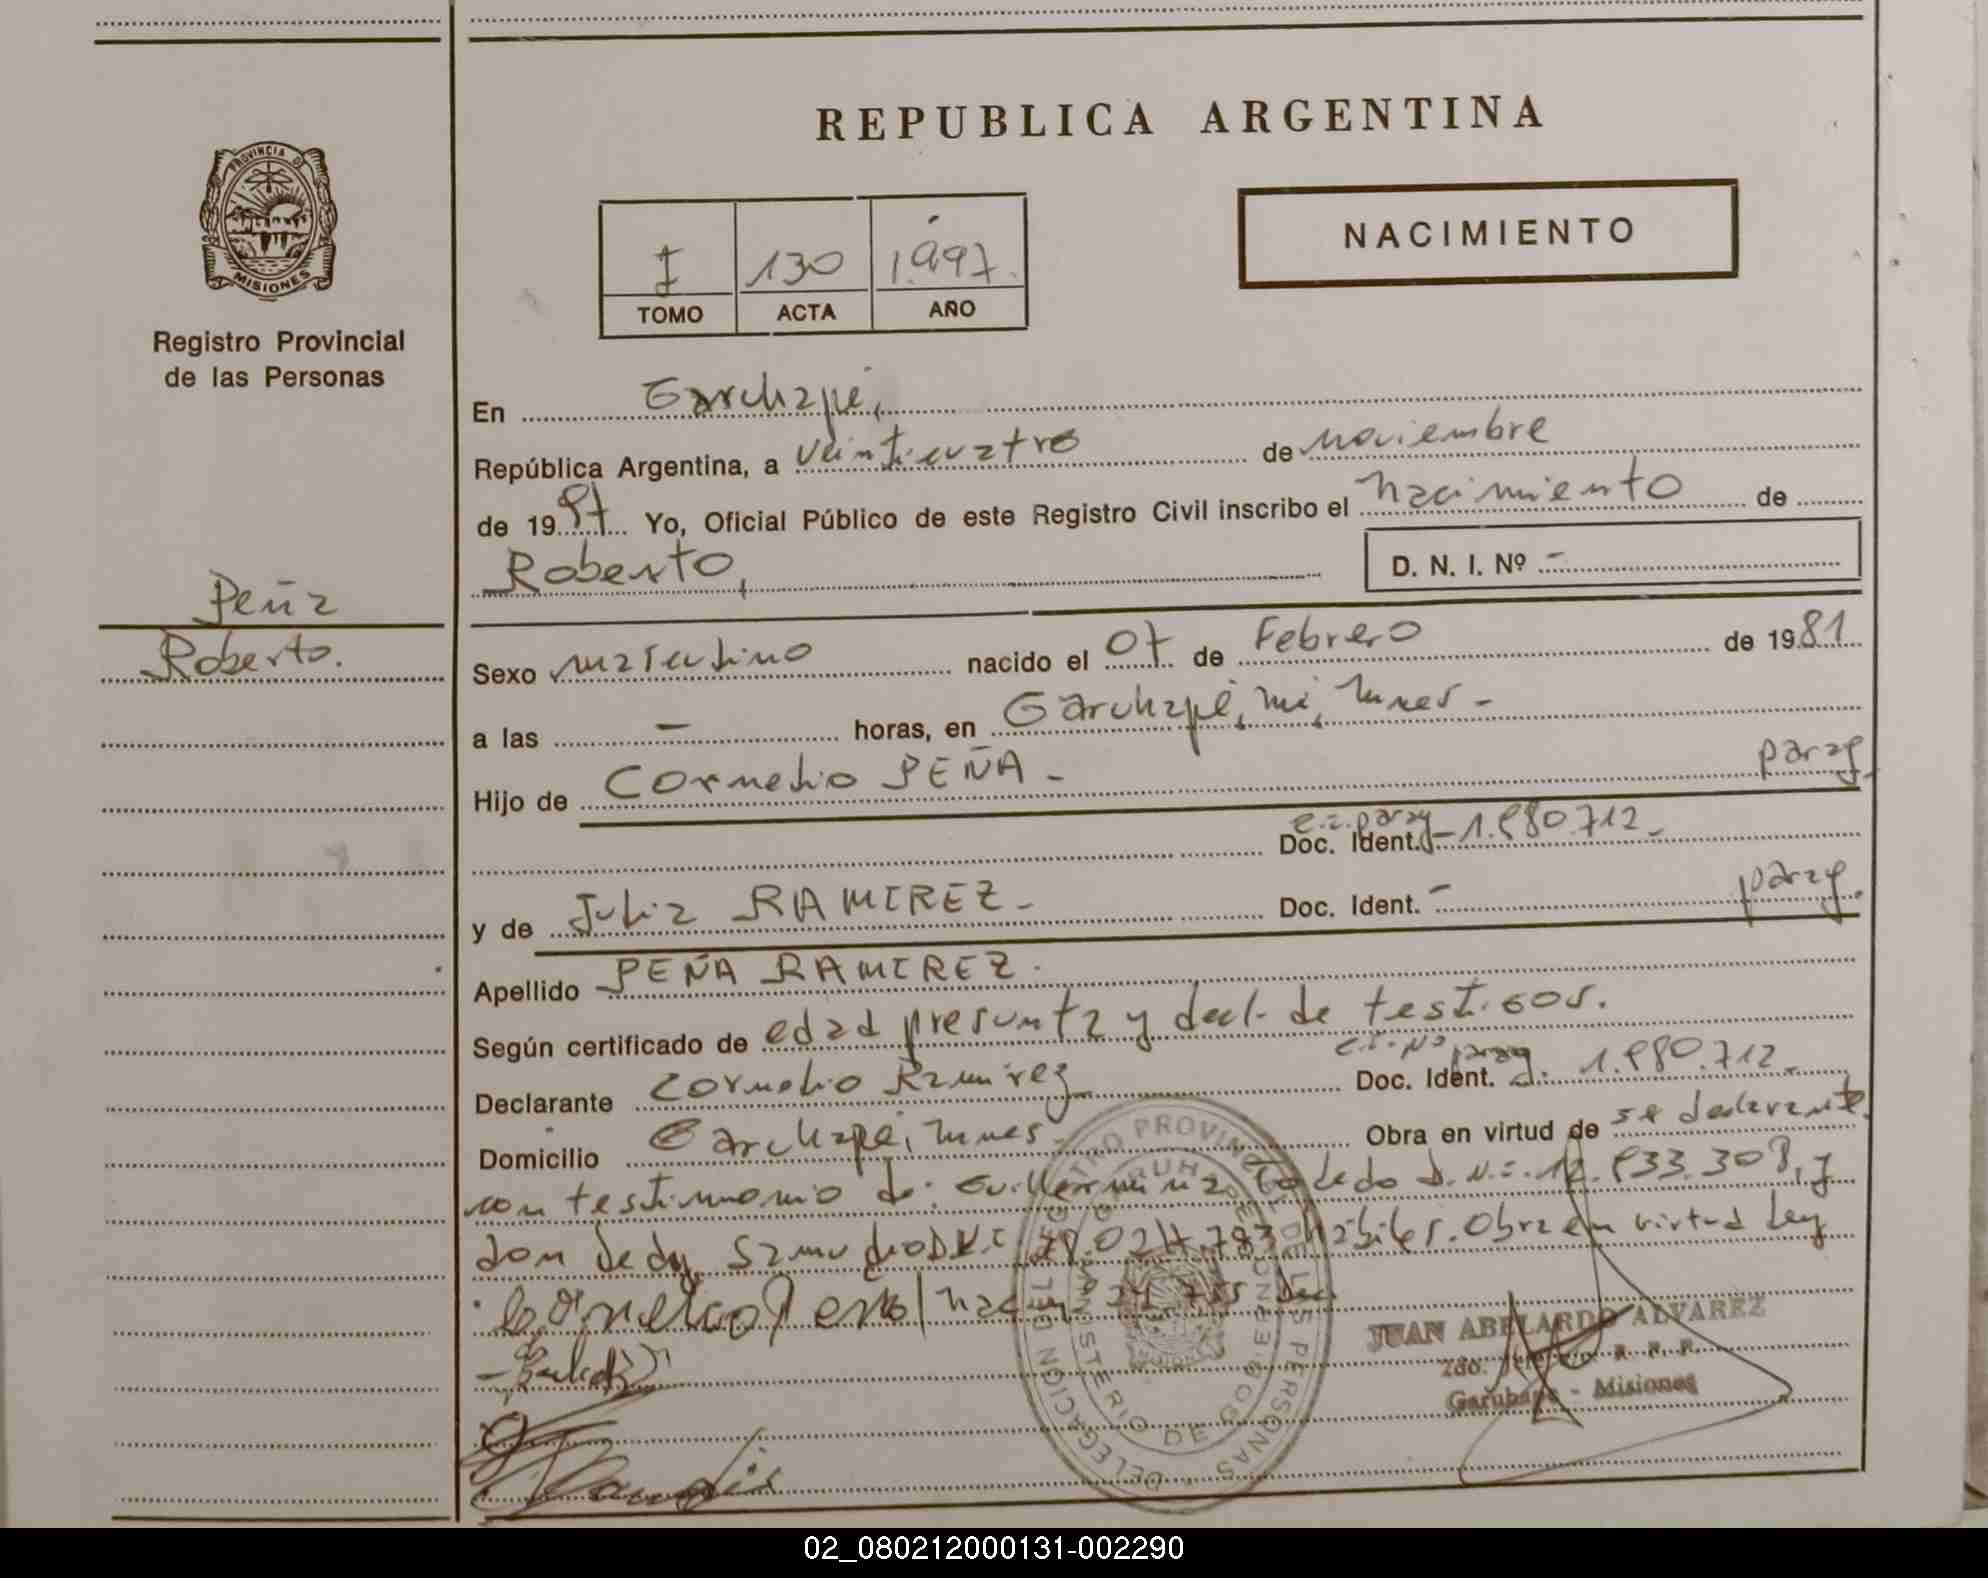 REPUBLICA ARGENTINA
NACIMIENTO
I 130 1.997.
TOMO ACTA AÑO
PROVINCIA DE
MISIONES
Registro Provincial
de las Personas
Peña
Roberto.
En Garuhapé,
República Argentina, a veinticuatro de noviembre
de 1997 Yo, Oficial Público de este Registro Civil inscribo el nacimiento de
Roberto, D. N. I. Nº -
Sexo masculino nacido el 07 de Febrero de 1981
a las - horas, en Garuhapé, Misiones -
Hijo de Cornelio PEÑA - parag.
Doc. Ident. c.i. parag 1.980.712.-
y de Julia RAMIREZ.- Doc. Ident. - parag.
Apellido PEÑA RAMIREZ.
Según certificado de edad presunta y decl. de testigos.
Declarante Cornelio Ramirez Doc. Ident. c.i. Nº parag. 1.980.712.-
Domicilio Garuhapé, Mnes. Obra en virtud de ser declarante
con testimonio de: Guillermina Toledo D.N.I. 12. 308, y
don Samudio DNI hábiles. Obra en virtud Ley
JUAN ABELARDO ALVAREZ
2do. R. P. P.
Garuhapé - Misiones
DELEGACION DEL REGISTRO PROVINCIAL DE LAS PERSONAS
MINISTERIO DE GOBIERNO
02_080212000131-002290